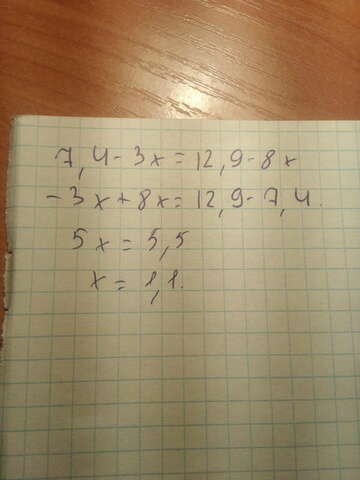 7,4 - 3x = 12,9 - 8x
-3x + 8x = 12,9 - 7,4.
5x = 5,5
x = 1,1.